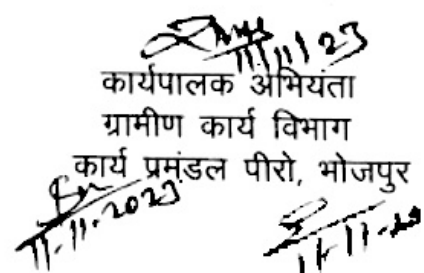 11/11/23
कार्यपालक अभियंता
ग्रामीण कार्य विभाग
कार्य प्रमंडल पीरो, भोजपुर
11-11-2023
11-11-23